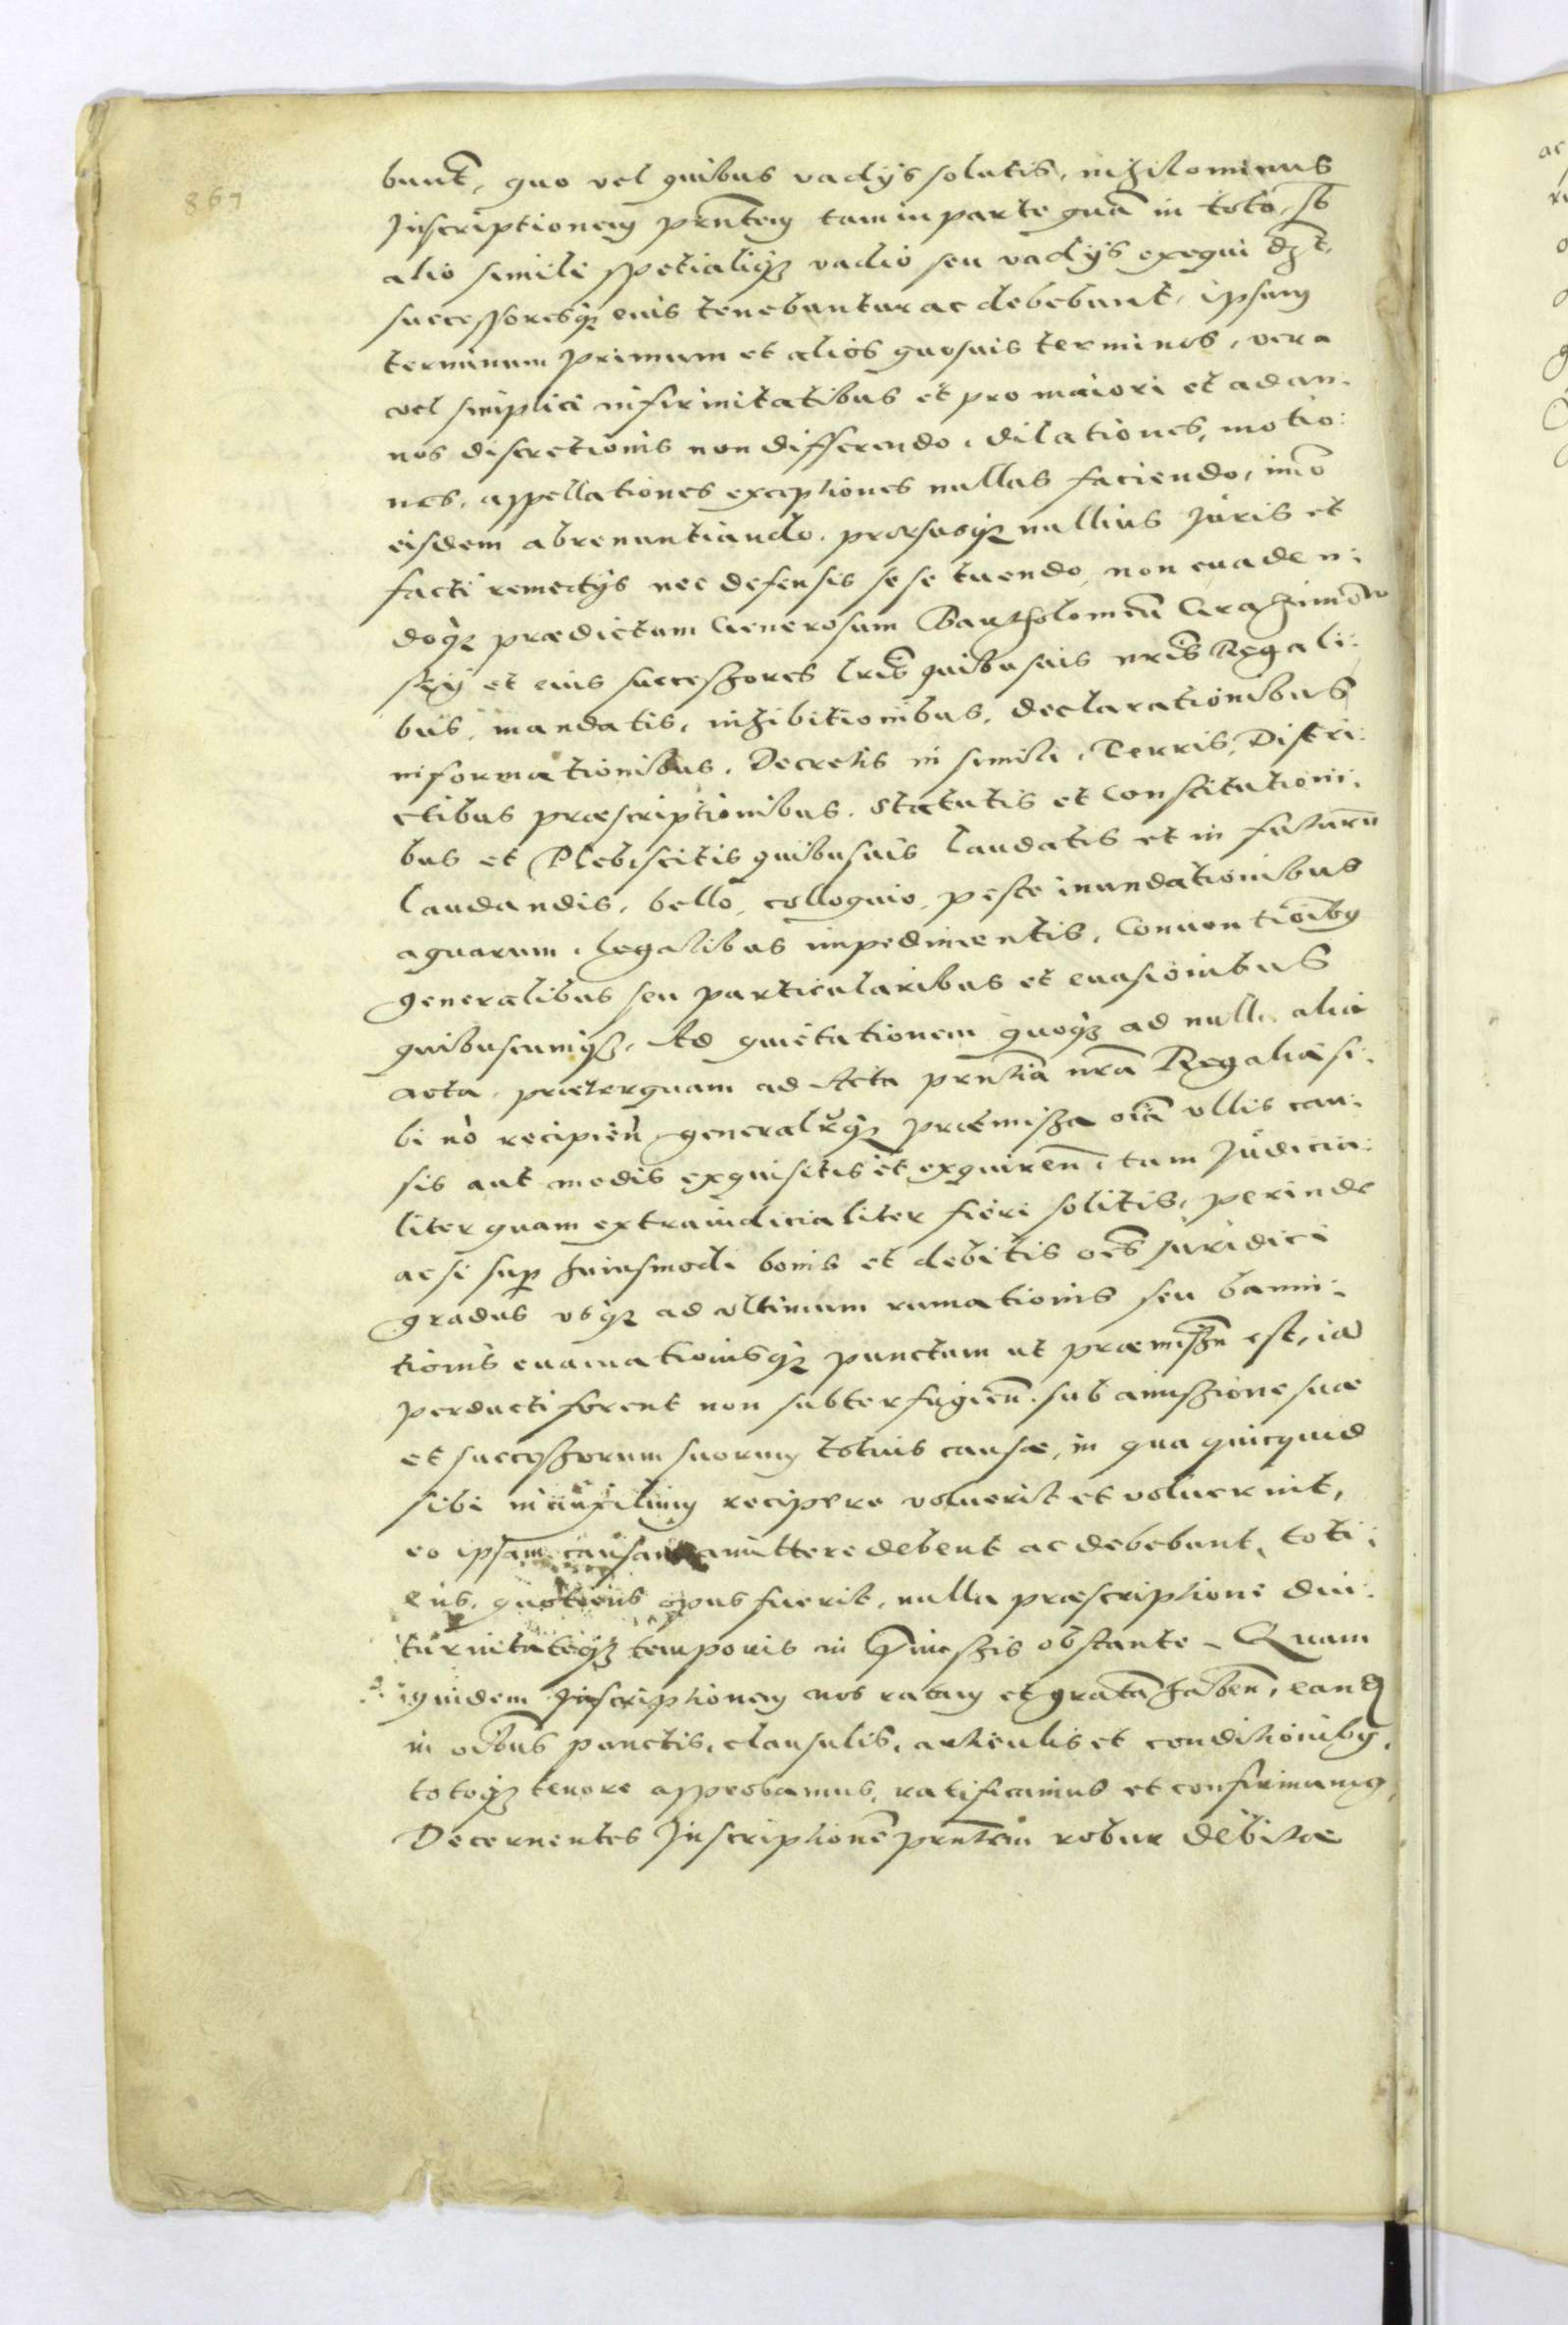 867
bunt, quo vel quibus vadijs solutis, nihilominus
Inscriptionem prntem tam in parte quã in toto, sb
alio simili spetialiq3 vadio seu vadijs exequi
successoresq3 eius tenebuntur ac debebunt, ipsum
terminum primum et alios quosuis terminos, vera
vel simplici infirmitatibus et pro maiori et ad an:
nos discretionis non differendo, dilationes, motio:
nes, appellationes exceptiones nullas faciendo, imo
eisdem abrenuntiando, prorsusq3 nullius Juris et
facti remedijs nec defensis sese tuendo, non euaden:
doq3 prædictum Generosum Bartholomeũ
skij et eius successores lris quibusuis nris Regali:
bus, mandatis, inhibitionibus, declarationibus
informationibus, Decretis in simili, Terris, Distri:
ctibus præscriptionibus, statutis et Constitutioni:
bus et Plebiscitis quibusuis laudatis et in futurũ
laudandis, bello, colloquio, peste inundationibus
aquarum, legalibus impedimentis, Conuentioibg
generalibus seu particularibus et euasionibus
quibuscumq3, Ad quietationem quoq3 ad nulla alia
acta, præterquam ad Acta prntia nra Regalia si:
bi nõ recipien, generalrq3 præmissa oia vllis cau:
sis aut modis exquisitis et exquiren, tam Judicia:
liter quam extraiudicialiter fieri solitis, perinde
acsi sup huiusmodi bonis et debitis oes juridici
gradus vsq3 ad vltimum rumationis seu banni:
tionis euamationisq3 punctum ut præmissũ est, iã
perducti forent non subterfugien, sub amissione suæ
et successorum suorum totius causæ, in qua quicquid
sibi in auxilium recipere voluerit et voluerint,
eo ipsam causam amittere debent ac debebunt, toti:
ens, quotiens opus fuerit, nulla præscriptione diu:
turnitateq3 temporis in Præmissis obstante - Quam
quidem Inscriptionem nos ratam et gratã haben, eand
in oibus punctis, clausulis, articulis et conditionibg,
totoq3 tenore approbamus, ratificamus et confirmamg,
Decernentes Inscriptionẽ prntem robur debitæ